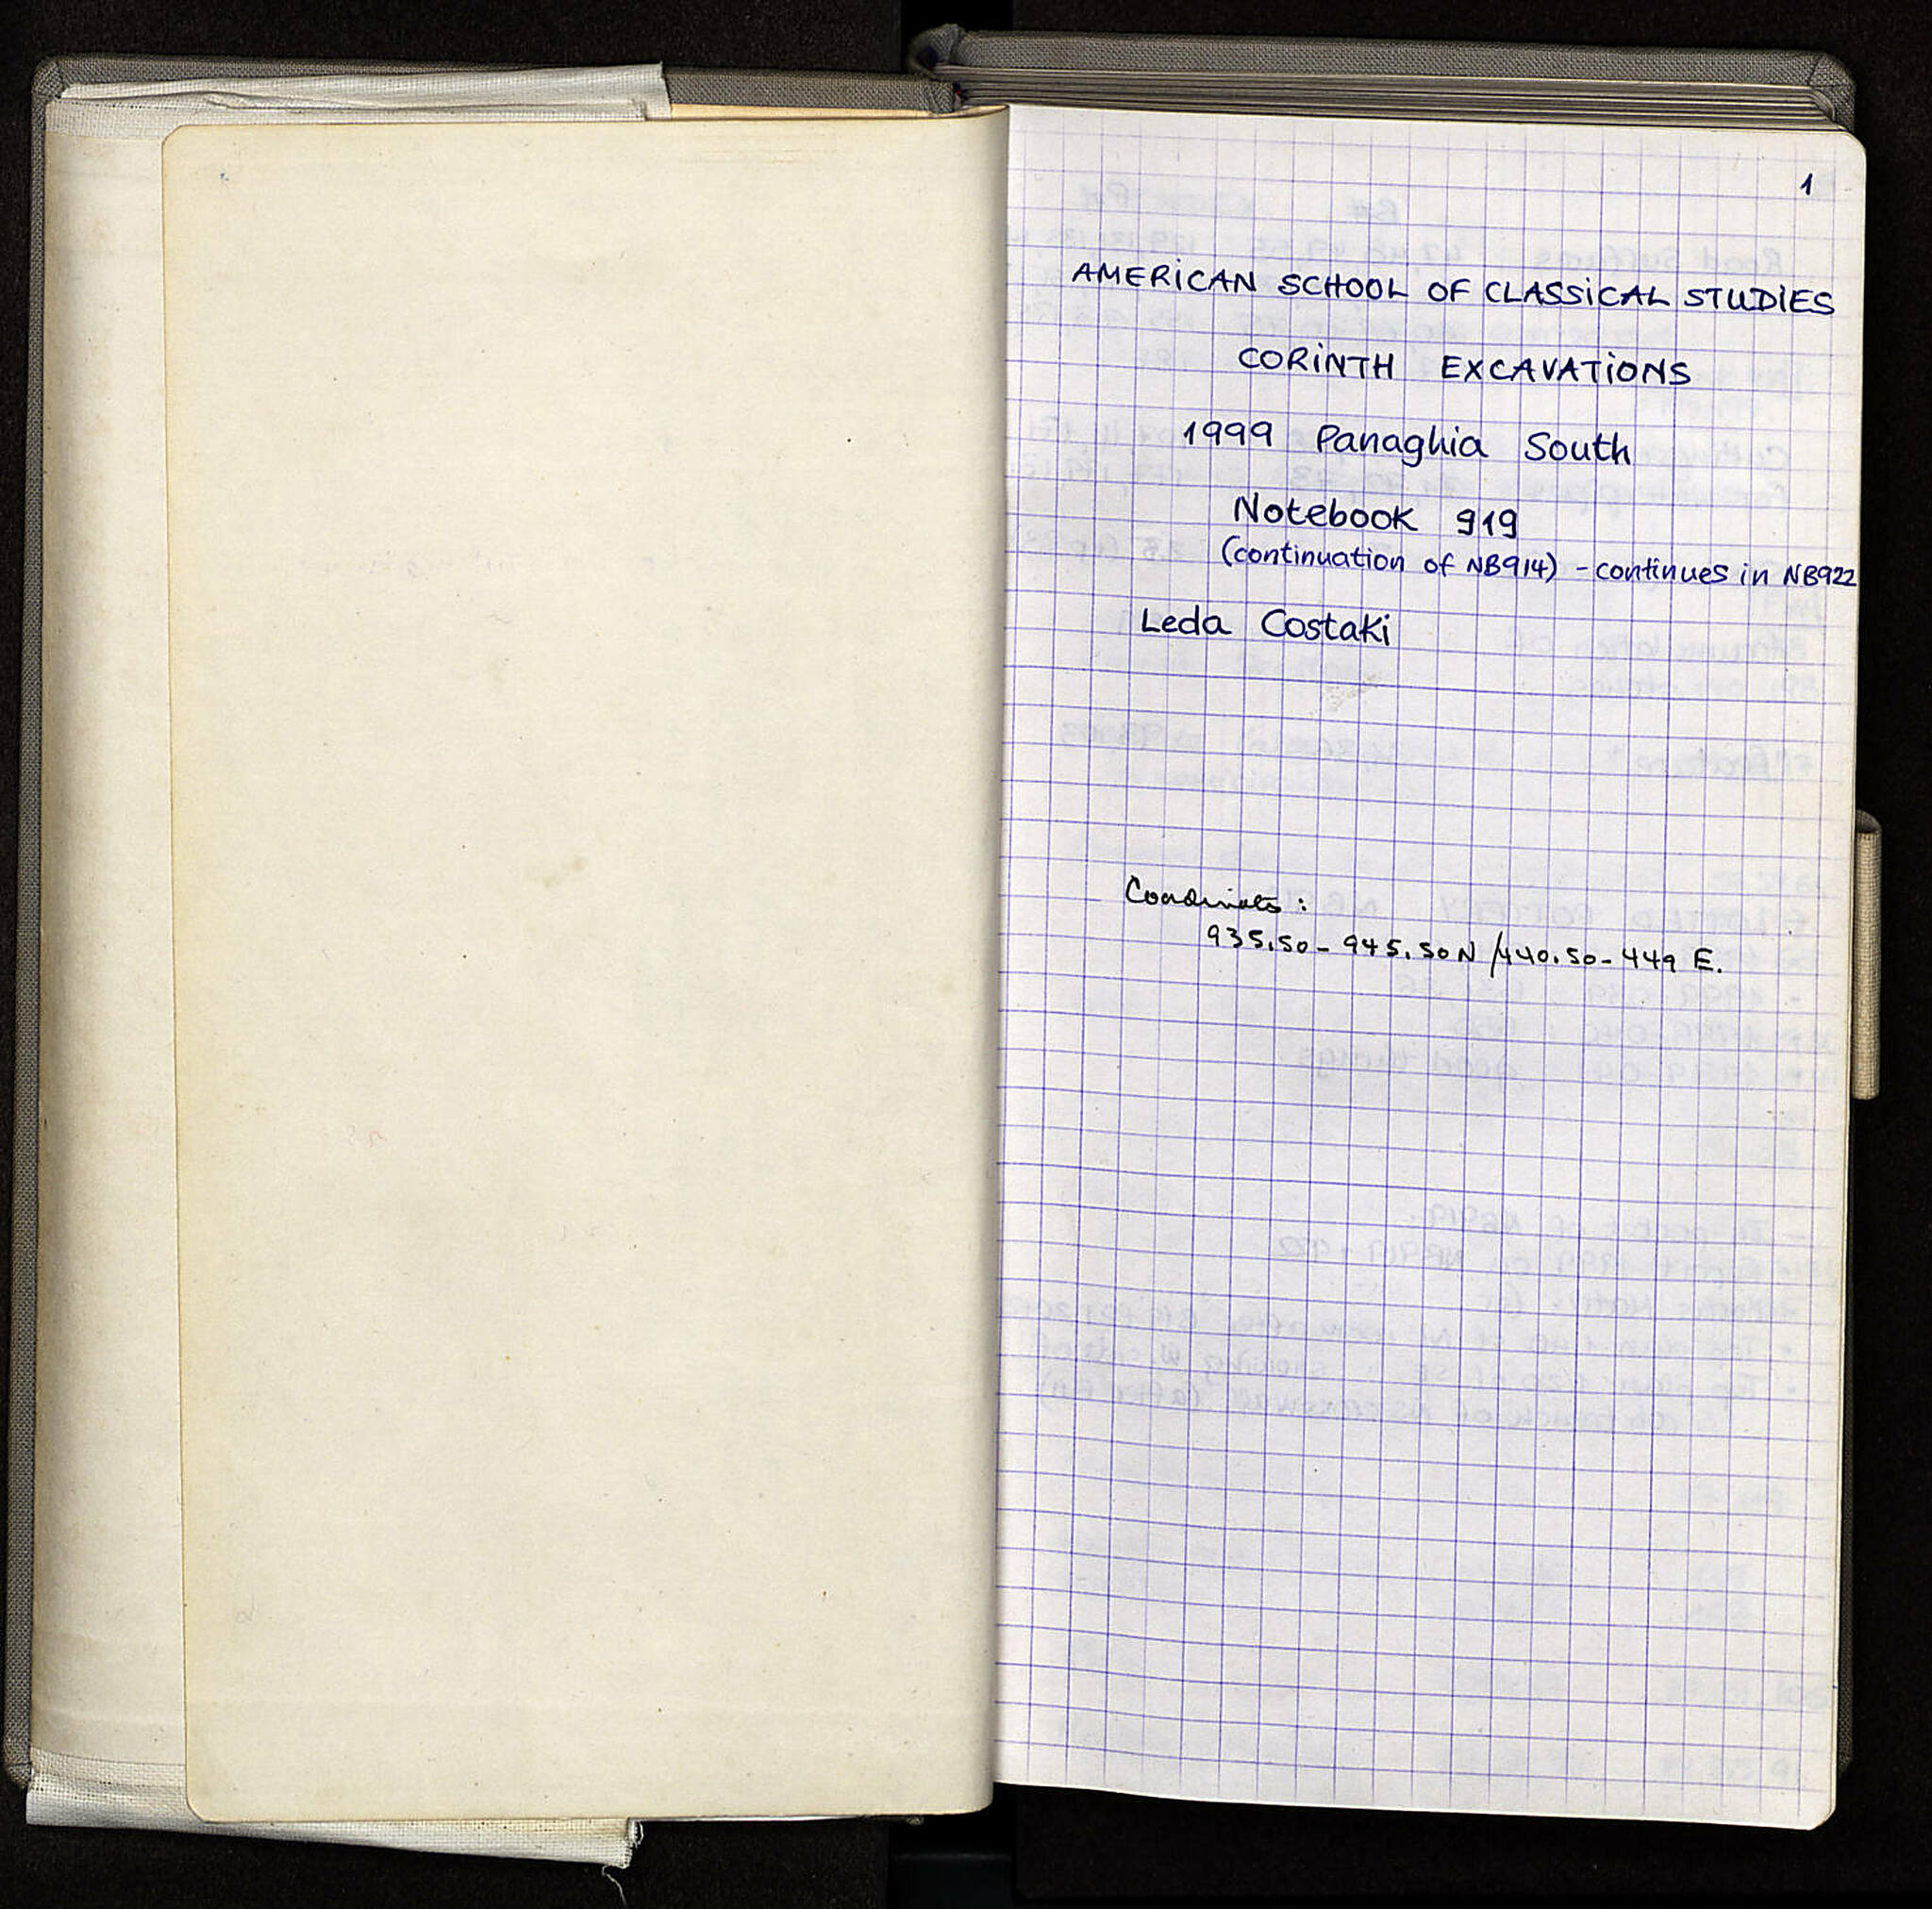 1
AMERICAN SCHOOL OF CLASSICAL STUDIES
CORINTH EXCAVATIONS
1999 Panaghia South
Notebook 919
(continuation of NB914) - continues in NB922
Leda Costaki
Coordinates :
935.50 - 945.50 N / 440.50 - 449 E.